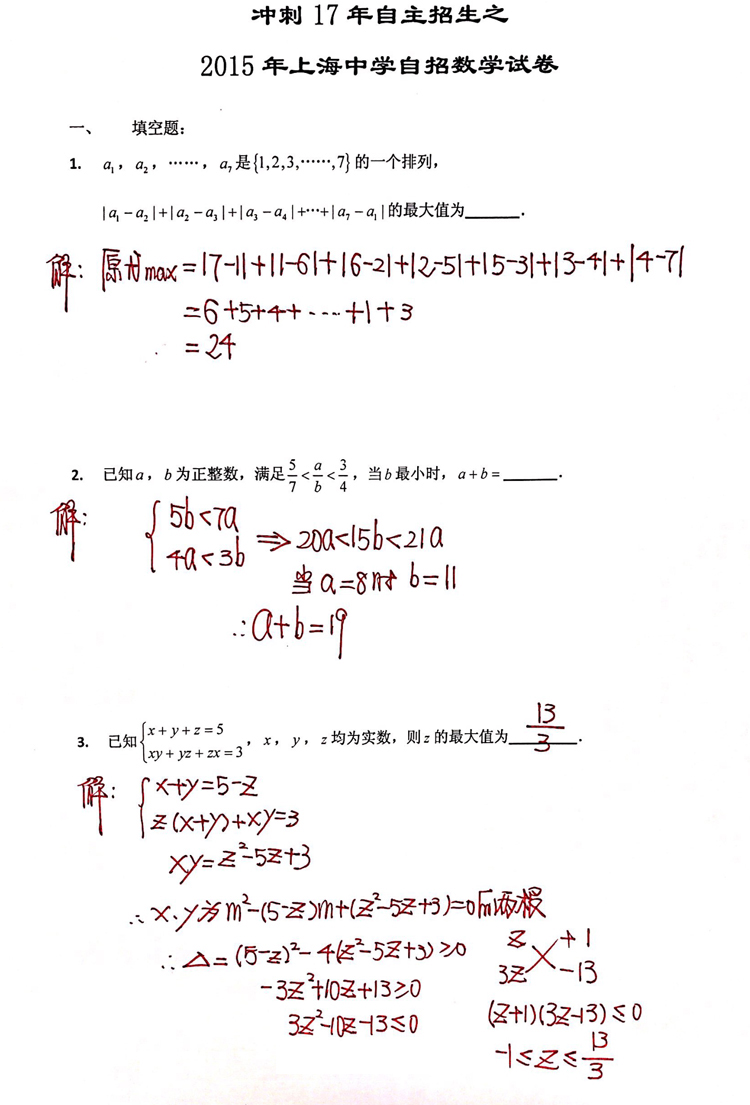 冲刺 17 年自主招生之
2015 年上海中学自招数学试卷
一、 填空题：
1. a₁，a₂，……，a₇是{1,2,3,……,7}的一个排列，
|a₁-a₂|+|a₂-a₃|+|a₃-a₄|+…+|a₇-a₁|的最大值为______.
解: 原式max=|7-1|+|1-6|+|6-2|+|2-5|+|5-3|+|3-4|+|4-7|
=6+5+4+----+1+3
=24
2. 已知a，b为正整数，满足5/7<a/b<3/4，当b最小时，a+b=______.
解: { 5b<7a
4a<3b ⇒ 20a<15b<21a
当 a=8时 b=11
∴a+b=19
3. 已知{x+y+z=5
xy+yz+zx=3，x，y，z均为实数，则z的最大值为 13/3 .
解: { x+y=5-z
z(x+y)+xy=3
xy=z²-5z+3
∴x、y为m²-(5-z)m+(z²-5z+3)=0的两根
∴Δ=(5-z)²-4(z²-5z+3)≥0
-3z²+10z+13≥0
3z²-10z-13≤0
z +1
3z -13
(z+1)(3z-13)≤0
-1≤z≤13/3